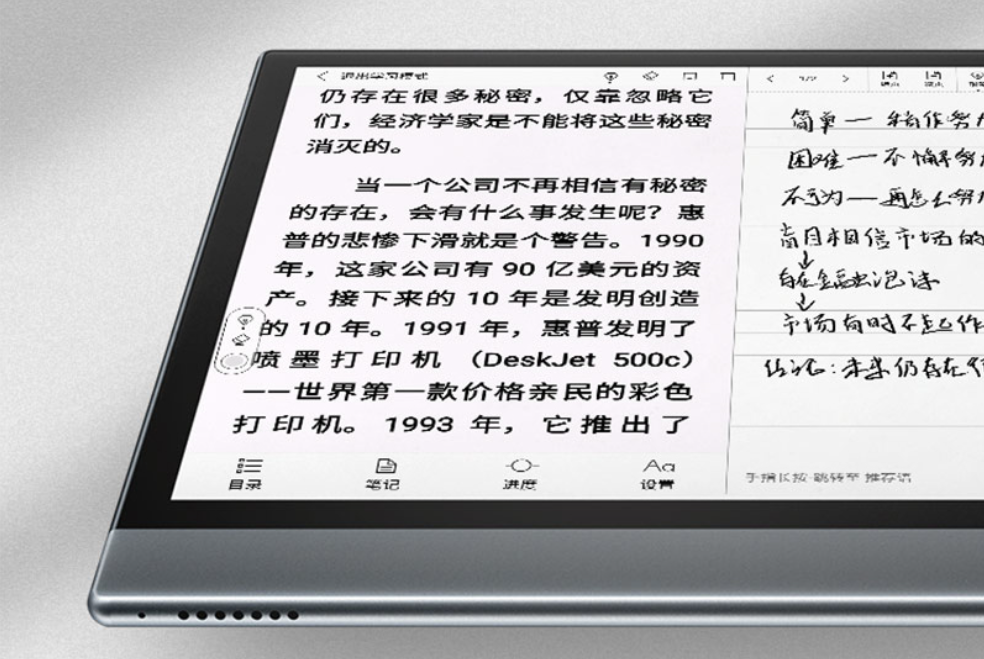 退出学习模式
仍存在很多秘密，仅靠忽略它
们，经济学家是不能将这些秘密
消灭的。
当一个公司不再相信有秘密
的存在，会有什么事发生呢？惠
普的悲惨下滑就是个警告。1990
年，这家公司有 90 亿美元的资
产。接下来的 10 年是发明创造
的 10 年。1991 年，惠普发明了
喷墨打印机（DeskJet 500c）
——世界第一款价格亲民的彩色
打印机。1993 年，它推出了
目录
笔记
进度
Aa
设置
简单一
困难一不
不可为一再怎么努力
盲目相信市场的
↓
↓
市场有时不起作
结论：未来仍存在
手指长按 跳转至 推荐语